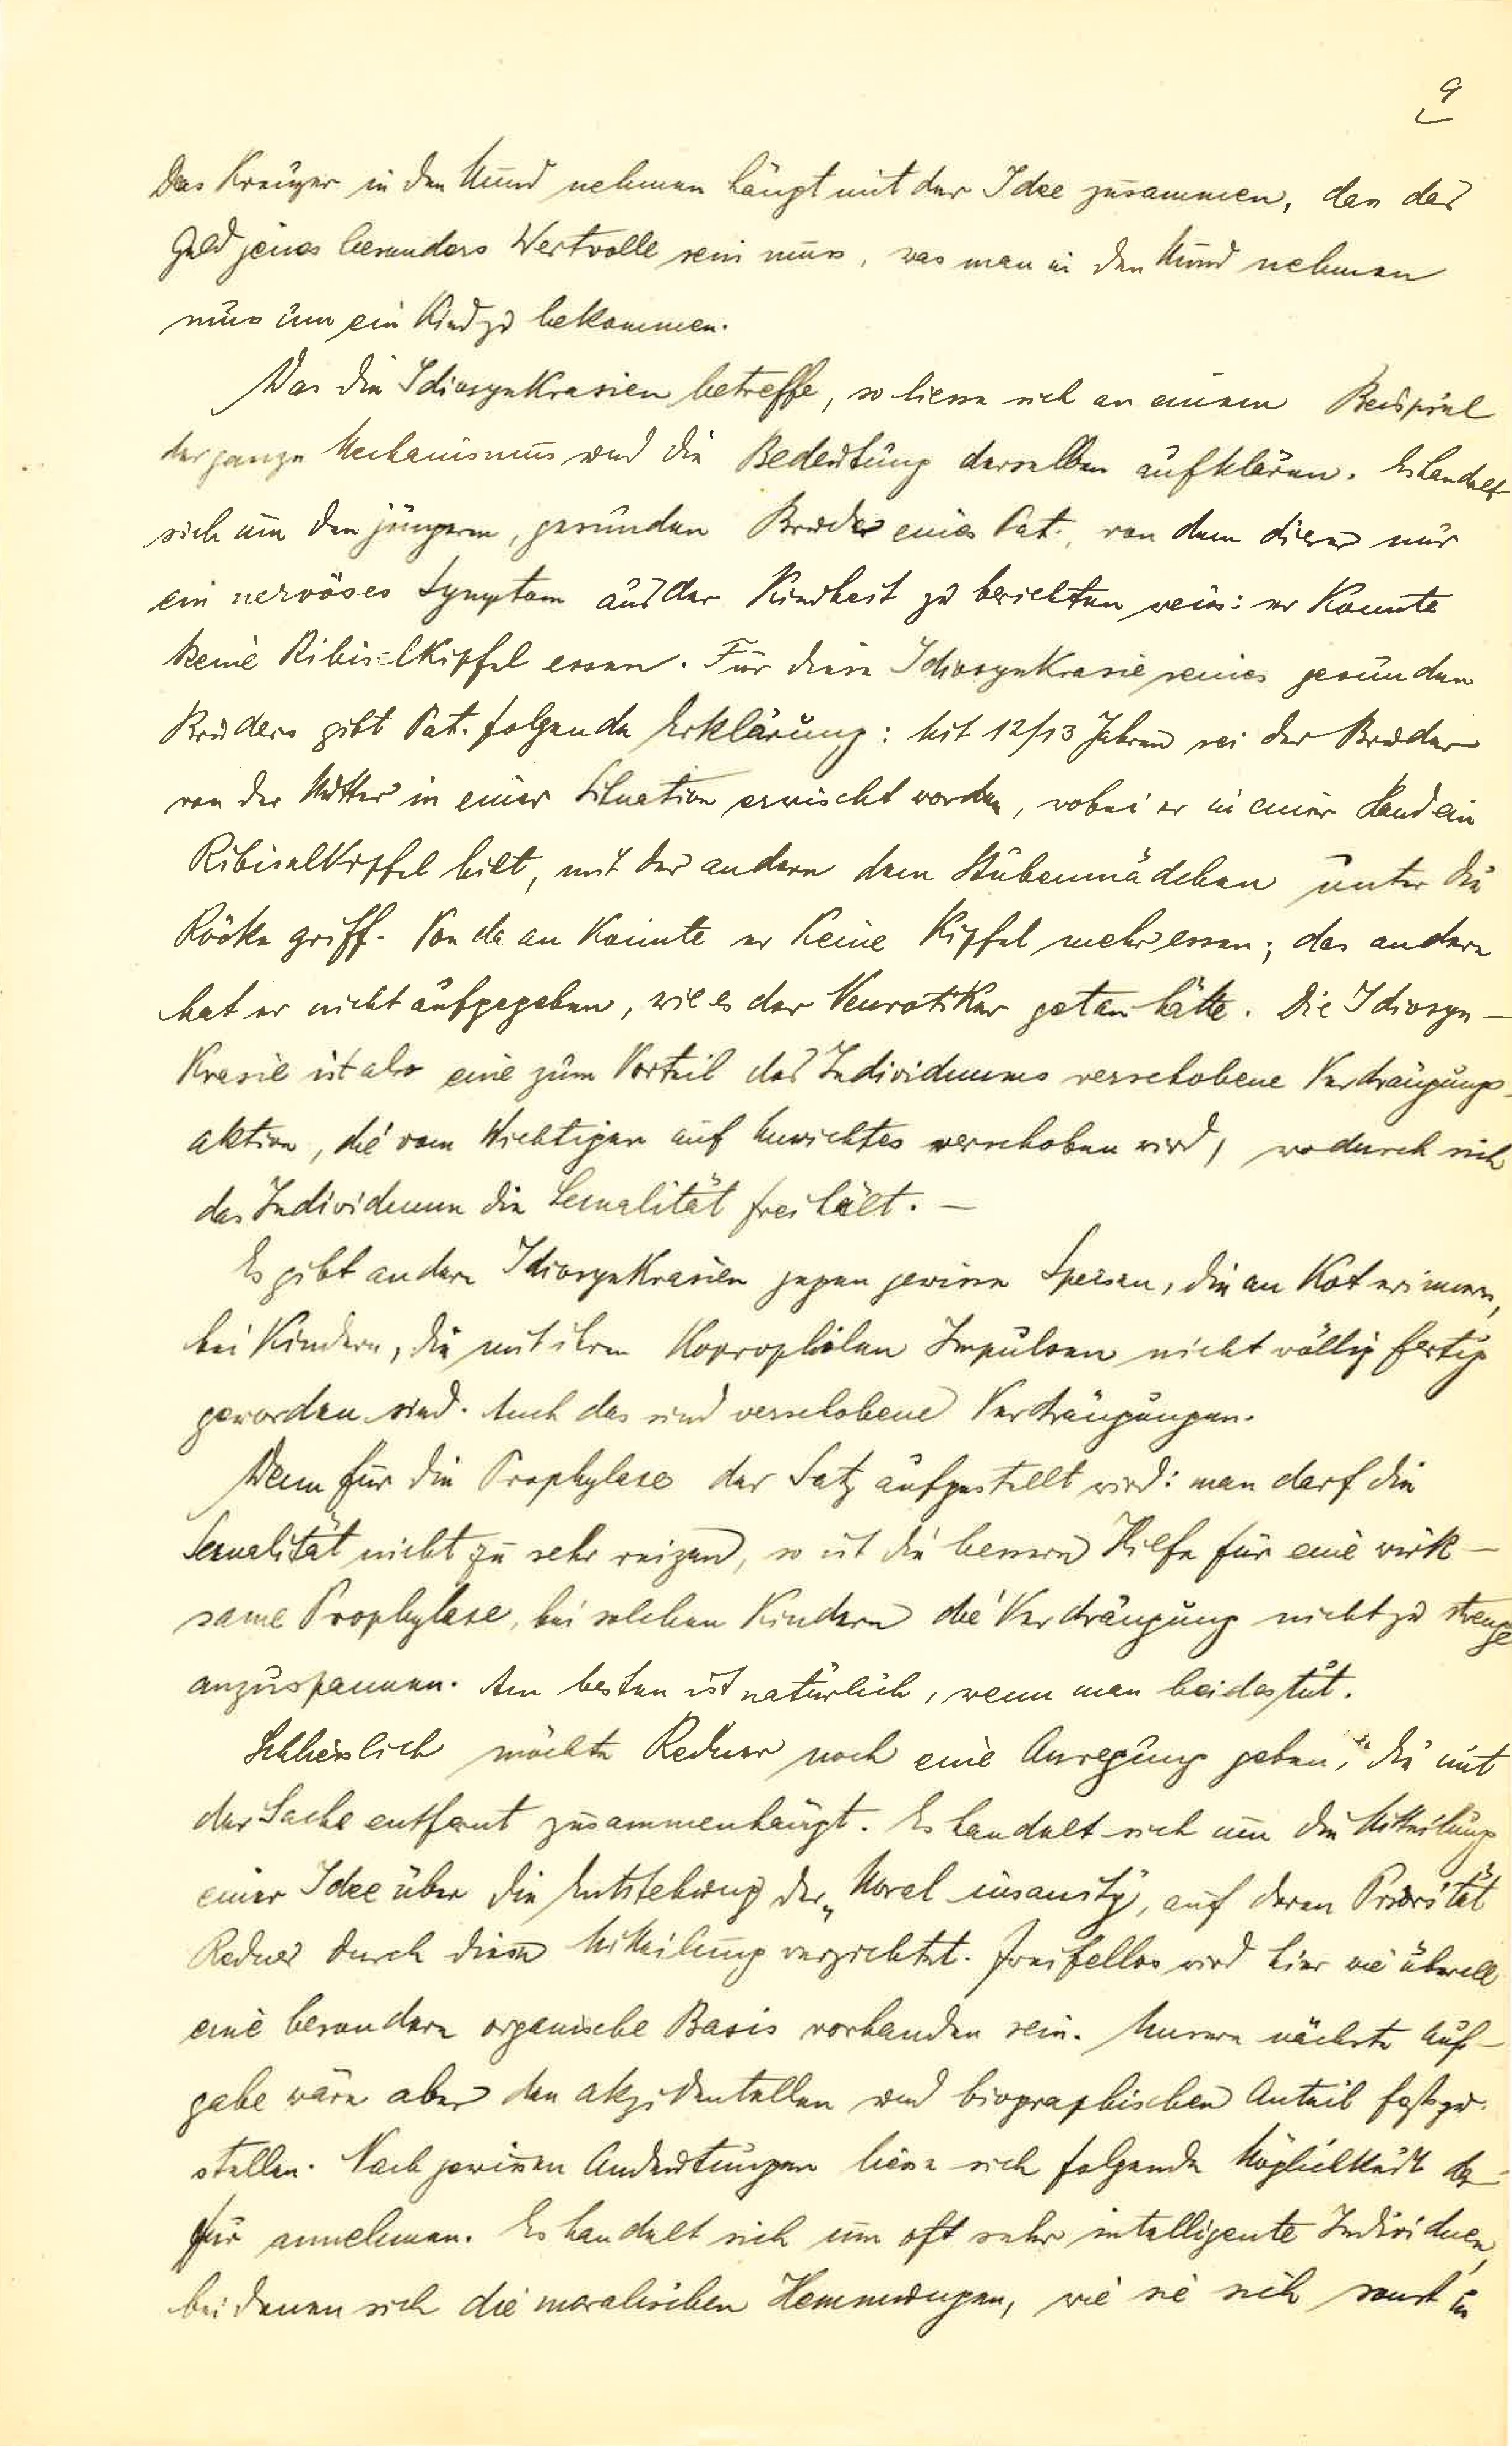 9
Das Kreuzer in den Mund nehmen hängt mit der Idee zusammen, dass das
Geld jenes besonders Wertvolle sein muss, was man in den Mund nehmen
muss um ein Kind zu bekommen.
Was die Idiosynkrasien betreffe, so liesse sich an einem Beispiel
der ganze Mechanismus und die Bedeutung derselben aufklären. Es handelt
sich um den jüngeren, gesunden Bruder eines Pat., von dem dieser nur
ein nervöses Symptom aus der Kindheit zu berichten weiss: er konnte
keine Ribiselkipfel essen. Für diese Idiosynkrasie seines gesunden
Bruders gibt Pat. folgende Erklärung: Mit 12/13 Jahren sei der Bruder
von der Mutter in einer Situation erwischt worden, wobei er in einer Hand ein
Ribiselkipfel hielt, mit der andern dem Stubenmädchen unter die
Röcke griff. Von da an konnte er keine Kipfel mehr essen; das andere
hat er nicht aufgegeben, wie es der Neurotiker getan hätte. Die Idiosyn-
krasie ist also eine zum Vorteil des Individuums verschobene Verdrängungs-
aktion, die vom Wichtigen auf Unwichtes verschoben wird, wodurch sich
das Individuum die Sexualität frei hält. —
Es gibt andere Idiosynkrasien gegen gewisse Speisen, die an Kot erinnern,
bei Kindern, die mit ihren koprophilen Impulsen nicht völlig fertig
geworden sind. Auch das sind verschobene Verdrängungen.
Wenn für die Prophylaxe der Satz aufgestellt wird: man darf die
Sexualität nicht zu sehr reizen, so ist die bessere Hilfe für eine wirk-
same Prophylaxe, bei solchen Kindern die Verdrängung nicht zu strenge
anzuspannen. Am besten ist natürlich, wenn man beides tut.
Schliesslich möchte Redner noch eine Anregung geben, die mit
der Sache entfernt zusammenhängt. Es handelt sich um die Mitteilung
einer Idee über die Entstehung der „Moral insanity", auf deren Priorität
Redner durch diese Mitteilung verzichtet. Zweifellos wird hier wie überall
eine besondere organische Basis vorhanden sein. Unsere nächste Auf-
gabe wäre aber den akzidentellen und biographischen Anteil festzu-
stellen. Nach gewissen Andeutungen liesse sich folgende Möglichkeit da-
für annehmen. Es handelt sich um oft sehr intelligente Individuen,
bei denen sich die moralischen Hemmungen, wie sie sich sonst in